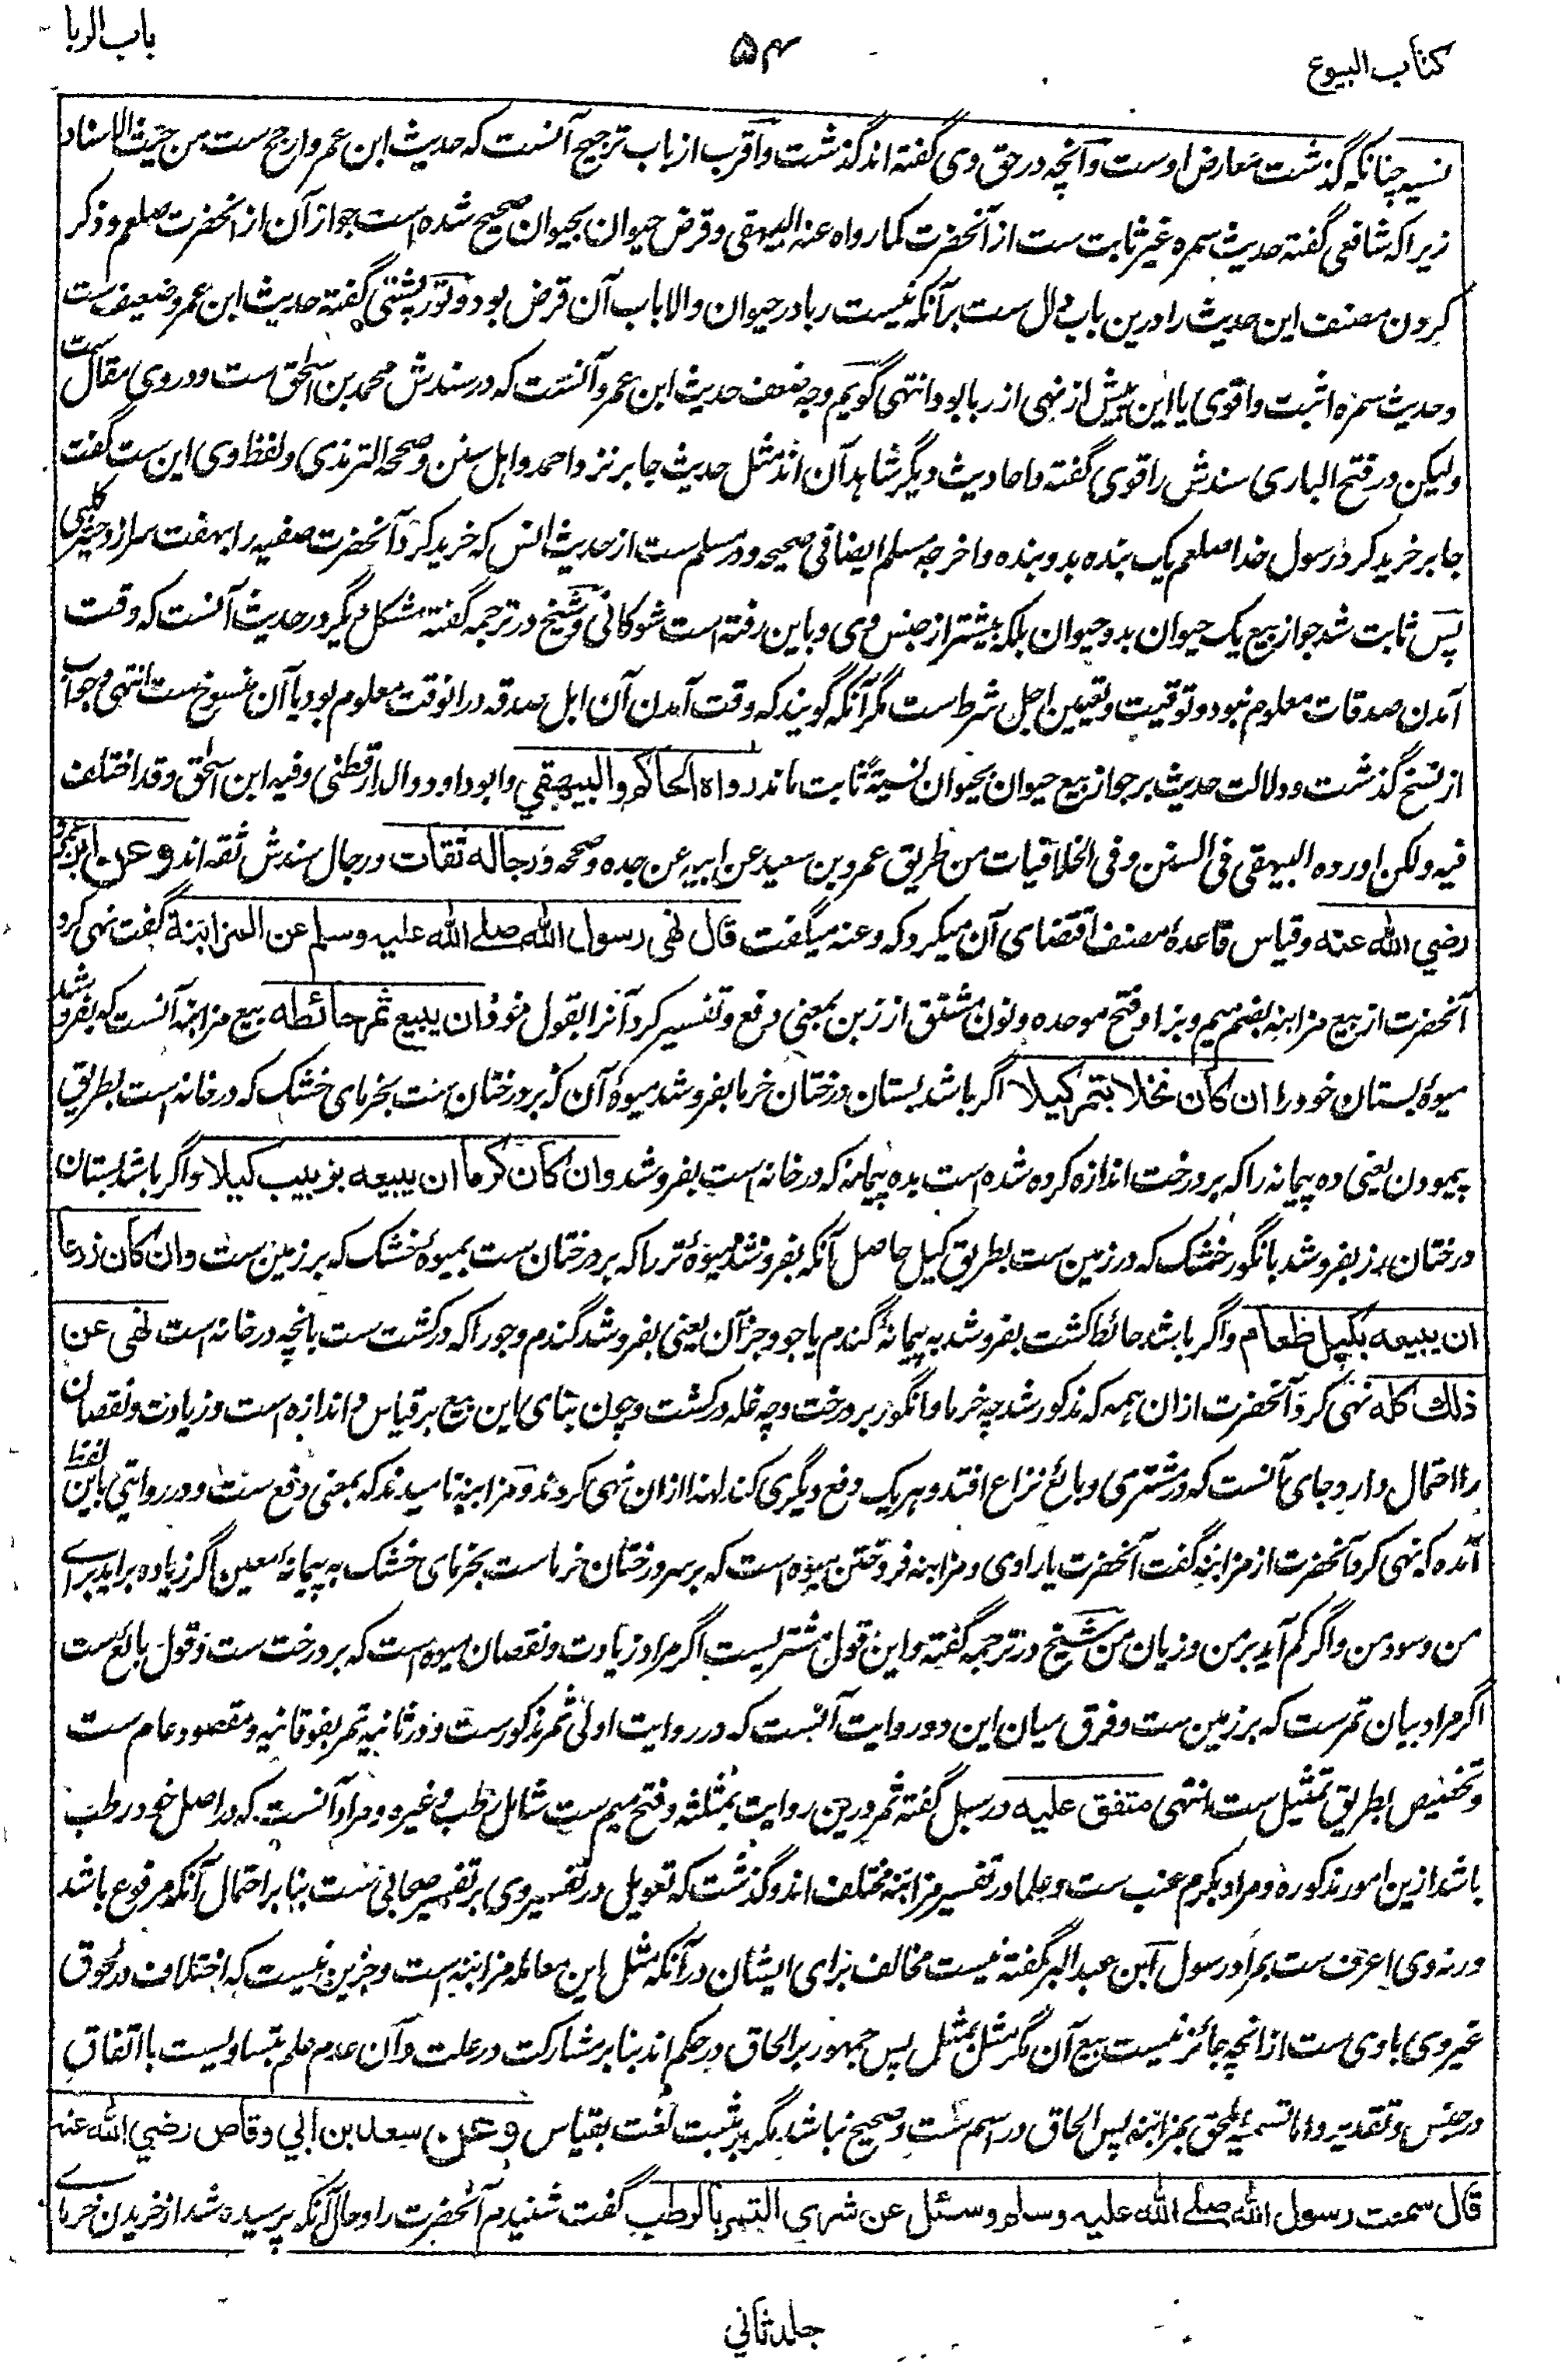 کتاب البیوع
۵۴
باب الربا
نسیه چنانکه گذشت معارض اوست و آنچه در حق وی گفته اند گذشت و اقرب از باب ترجیح آنست که حدیث ابن عمر و ارجح ست من حیث الاسناد
زیرا که شافعی گفته حدیث سمره غیر ثابت ست از آنحضرت کما رواه عنه البیهقی و قرض حیوان بحیوان صحیح شده است جواز آن از انحضرت صلعم و ذکر
کردن مصنف این حدیث را درین باب دال ست بر آنکه نیست ربا در حیوان والا باب آن قرض بود و تورپشتی گفته حدیث ابن عمرو ضعیف ست
و حدیث سمره اثبت و اقوی یا این پیش از نهی از ربا بود انتهی گویم وجه ضعف حدیث ابن عمرو آنست که در سندش محمد بن اسحق ست و در وی مقال ست
ولیکن در فتح الباری سندش را قوی گفته و احادیث دیگر شاهد آن اند مثل حدیث جابر نزد احمد و اهل سنن و صححه الترمذی و لفظ وی این ست گفت
جابر خرید کرد رسول خدا صلعم یک بنده بدو بنده و اخرجه مسلم ایضا فی صحیحه و در مسلم ست از حدیث انس که خرید کرد آنحضرت صفیه را بهفت سر از دحیه کلبی
پس ثابت شد جواز بیع یک حیوان بدو حیوان بلکه بیشتر از جنس وی و باین رفته است شوکانی و شیخ در ترجمه گفته مشکل دیگر در حدیث آنست که وقت
آمدن صدقات معلوم نبود و توقیت و تعیین اجل شرط ست مگر آنکه گویند که وقت آمدن آن ابل صدقه در انوقت معلوم بود یا آن منسوخ ست انتهی و جواب
از نسخ گذشت و دلالت حدیث بر جواز بیع حیوان بحیوان نسیئةً ثابت ماند رواه الحاکم والبیهقي و ابوداود والدارقطنی وفیه ابن اسحق وقد اختلف
فیه ولکن اورده البیهقی فی السنن وفی الخلافیات من طریق عمرو بن سعید عن ابیه عن جده وصححه ورجاله ثقات و رجال سندش ثقه اند وعن ابن عمر
رضي الله عنه و قیاس قاعدهٔ مصنف اقتضای آن میکرد که وعنه میگفت قال نهی رسول الله صلے الله علیه وسلم عن المزابنة گفت نهی کرد
آنحضرت از بیع مزابنه بضم میم و بزا و فتح موحده و نون مشتق از زبن بمعنی دفع و تفسیر کرد آنرا بقول خود ان یبیع ثمر حائطه بیع مزابنه آنست که بفروشد
میوهٔ بستان خود را ان کان نخلا بتمر کیلا اگر باشد بستان درختان خرما بفروشد میوهٔ آن که بر درختان ست بخرمای خشک که در خانه است بطریق
پیمودن یعنی ده پیمانه را که بر درخت اندازه کرده شده است بده پیمانه که در خانه است بفروشد وان کان کرما ان یبیعه بزبیب کیلا و اگر باشد بستان
درختان رز بفروشد بانگور خشک که در زمین ست بطریق کیل حاصل آنکه بفروشد میوهٔ تر را که بر درختان ست بمیوهٔ خشک که بر زمین ست وان کان زرعا
ان یبیعه بکیل طعام و اگر باشد حائط کشت بفروشد به پیمانهٔ گندم یا جو و جز آن یعنی بفروشد گندم و جو را که در کشت ست بانچه در خانه است نهی عن
ذلك کله نهی کرد آنحضرت از ان همه که مذکور شد چه خرما و انگور بر درخت و چه غله در کشت و چون بنای این بیع بر قیاس و اندازه است و زیادت و نقصان
را احتمال دارد جای آنست که در مشتری و بائع نزاع افتد و هر یک دفع دیگری کند لهذا از ان نهی کردند و مزابنه نامیدند که بمعنی دفع ست و در روایتی باین لفظ
آمده که نهی کرد آنحضرت از مزابنه گفت آنحضرت یا راوی و مزابنه فروختن میوه است که بر سر درختان خرماست بخرمای خشک به پیمانهٔ معین اگر زیاده برآید برای
من و سود من و اگر کم آید بر من و زیان من شیخ در ترجمه گفته و این قول مشتریست اگر مراد زیادت و نقصان میوه است که بر درخت ست و قول بائع ست
اگر مراد بیان تمرست که بر زمین ست و فرق میان این دو روایت آنست که در روایت اولیٰ ثمر مذکورست و در ثانیه تمر بفوقانیه و مقصود عام ست
و تخصیص بطریق تمثیل ست انتهی متفق علیه در سبل گفته ثمر درین روایت بمثلثه و فتح میم ست شامل رطب و غیره و مراد آنست که در اصل خود رطب
باشد ازین امور مذکوره و مراد بکرم عنب ست و علما در تفسیر مزابنه مختلف اند و گذشت که تعویل در تفسیر وی بر تفسیر صحابی ست بنا بر احتمال آنکه مرفوع باشد
ورنه وی اعرف ست بمراد رسول ابن عبدالبر گفته نیست مخالف برای ایشان در آنکه مثل این معامله مزابنه است و جزین نیست که اختلاف در لحوق
غیر وی باوی ست از انچه جائز نیست بیع آن مگر مثل بمثل پس جمهور بر الحاق در حکم اند بنا بر مشارکت در علت و آن عدم علم بتساویست با اتفاق
در جنس و تقدیر و اما تسمیهٔ ملحق بمزابنه پس الحاق در اسم ست و صحیح نباشد مگر بر ثبت لغت بقیاس وعن سعد بن ابي وقاص رضي الله عنه
قال سمعت رسول الله صلے الله علیه وسلم وسئل عن شری التمر بالرطب گفت شنیدم آنحضرت را و حال آنکه پرسیده شد از خریدن خرمای
جلد ثاني